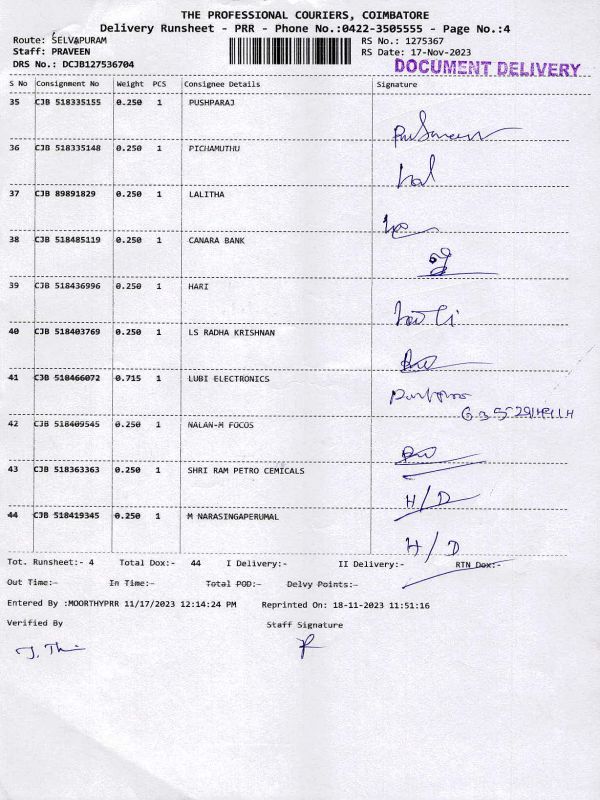 THE PROFESSIONAL COURIERS, COIMBATORE
Delivery Runsheet - PRR - Phone No.:0422-3505555 - Page No.:4
Route: SELVAPURAM RS No.: 1275367
Staff: PRAVEEN RS Date: 17-Nov-2023
DRS No.: DCJB127536704 DOCUMENT DELIVERY
S No Consignment No Weight PCS Consignee Details Signature
35 CJB 518335155 0.250 1 PUSHPARAJ
36 CJB 518335148 0.250 1 PICHAMUTHU
37 CJB 89891829 0.250 1 LALITHA
38 CJB 518485119 0.250 1 CANARA BANK
39 CJB 518436996 0.250 1 HARI
40 CJB 518403769 0.250 1 LS RADHA KRISHNAN
41 CJB 510466072 0.715 1 LUBI ELECTRONICS
42 CJB 518409545 0.250 1 NALAN-M FOCOS
43 CJB 518363363 0.250 1 SHRI RAM PETRO CEMICALS
H/D
44 CJB 518419345 0.250 1 M NARASINGAPERUMAL
H/D
Tot. Runsheet:- 4 Total Dox:- 44 I Delivery:- II Delivery:- RTN Dox:-
Out Time:- In Time:- Total POD:- Delvy Points:-
Entered By :MOORTHYPRR 11/17/2023 12:14:24 PM Reprinted On: 18-11-2023 11:51:16
Verified By Staff Signature